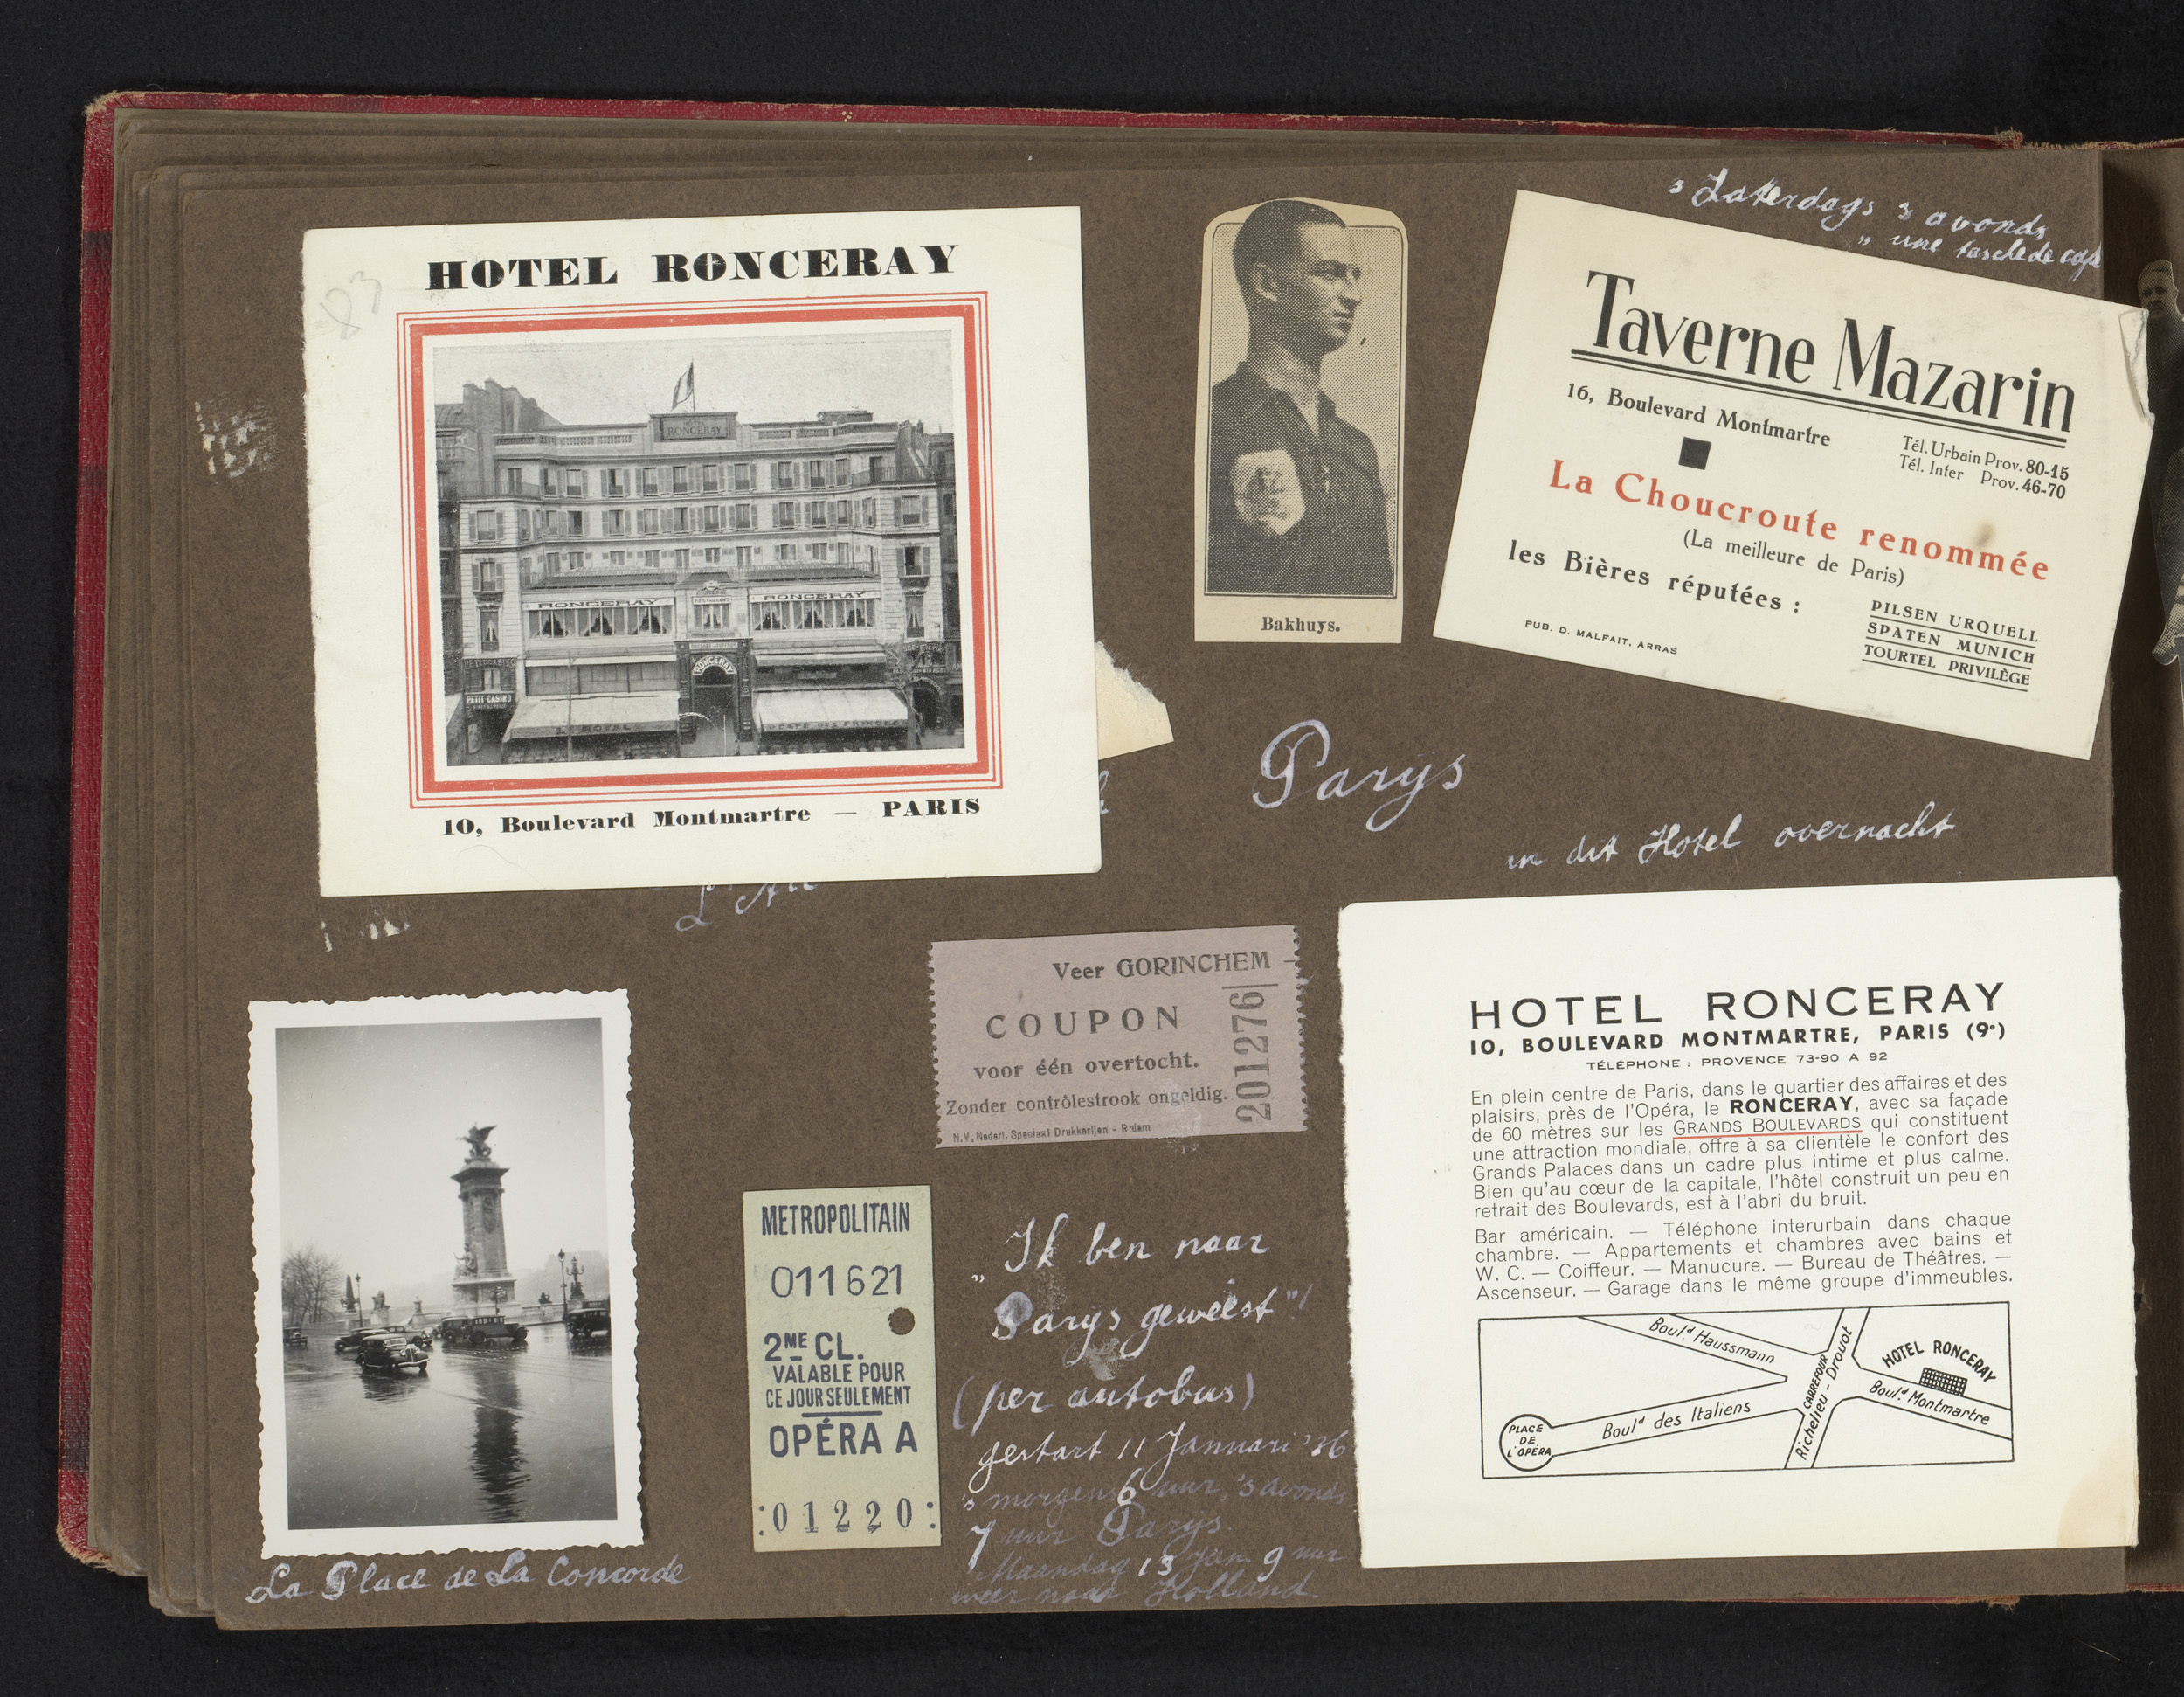 HOTEL RONCERAY
HOTEL
RONCERAY
RONCERAY
RESTAURANT
RONCERAY
RONCERAY
PETIT CASINO
LE ROYAL
CAFE DES PRINCES
10, Boulevard Montmartre — PARIS
83
Bakhuys.
's Zaterdags 's avonds
Taverne Mazarin
16, Boulevard Montmartre
Tél. Urbain Prov. 80-15
Tél. Inter Prov. 46-70
La Choucroute renommée
(La meilleure de Paris)
les Bières réputées :
PILSEN URQUELL
SPATEN MUNICH
TOURTEL PRIVILÈGE
PUB. D. MALFAIT, ARRAS
Parys
in dit Hotel overnacht
Veer GORINCHEM -
COUPON
voor één overtocht.
Zonder contrôlestrook ongeldig.
N.V. Nederl. Speciaal Drukkerijen - R-dam
201276
La Place de La Concorde
METROPOLITAIN
011621
2ME CL.
VALABLE POUR
CE JOUR SEULEMENT
OPÉRA A
:01220:
"Ik ben naar
Parys geweest"!
(per autobus)
gestart 11 Januari '36
's morgens 6 uur, 's avonds
7 uur Parys.
Maandag 13 Jan 9 uur
weer naar Holland
HOTEL RONCERAY
10, BOULEVARD MONTMARTRE, PARIS (9e)
TÉLÉPHONE : PROVENCE 73-90 A 92
En plein centre de Paris, dans le quartier des affaires et des
plaisirs, près de l'Opéra, le RONCERAY, avec sa façade
de 60 mètres sur les GRANDS BOULEVARDS qui constituent
une attraction mondiale, offre à sa clientèle le confort des
Grands Palaces dans un cadre plus intime et plus calme.
Bien qu'au cœur de la capitale, l'hôtel construit un peu en
retrait des Boulevards, est à l'abri du bruit.
Bar américain. — Téléphone interurbain dans chaque
chambre. — Appartements et chambres avec bains et
W. C. — Coiffeur. — Manucure. — Bureau de Théâtres. —
Ascenseur. — Garage dans le même groupe d'immeubles.
Boul.d Haussmann
CARREFOUR
Richelieu - Drouot
HOTEL RONCERAY
Boul.d Montmartre
Boul.d des Italiens
PLACE
DE
L'OPÉRA